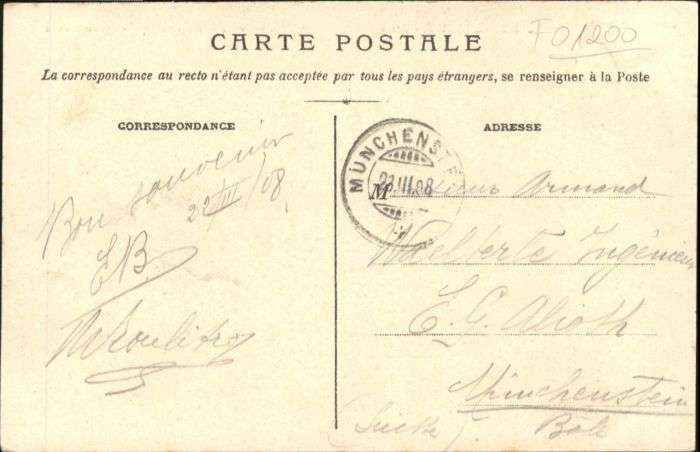 FO1200
CARTE POSTALE
La correspondance au recto n'étant pas acceptée par tous les pays étrangers, se renseigner à la Poste
CORRESPONDANCE
Bon souvenir
22/III/08
EB.
ADRESSE
MÜNCHENSTE
III.08
Monsieur Armand
Ingénieur
E. G. Alioth
Münchenstein
Bâle